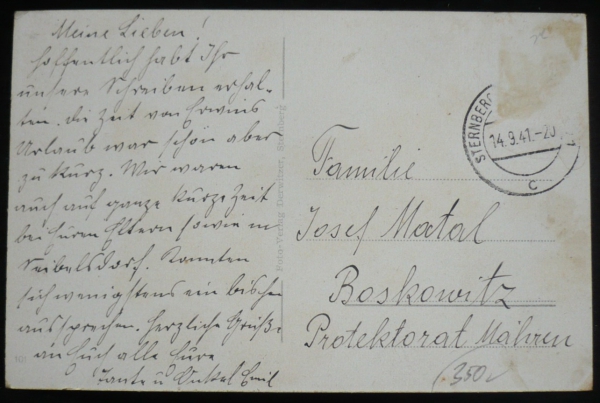 Meine Lieben!
Hoffentlich habt Ihr
unsere Schreiben erhal-
ten. die Zeit von Erwins
Urlaub war schön aber
zu kurz. Wir waren
auch auf ganze kurze Zeit
bei Euren Eltern sowie in
Seibelsdorf. Konnten
sich wenigstens ein bischen
aussprechen. Herzliche Grüße
an Euch alle Eure
Tante u Onkel Emil
Foto-Verlag Sternberg
STERNBERG
14.9.41.-20
c
Familie
Josef Matal
Boskowitz
Protektorat Mähren
350